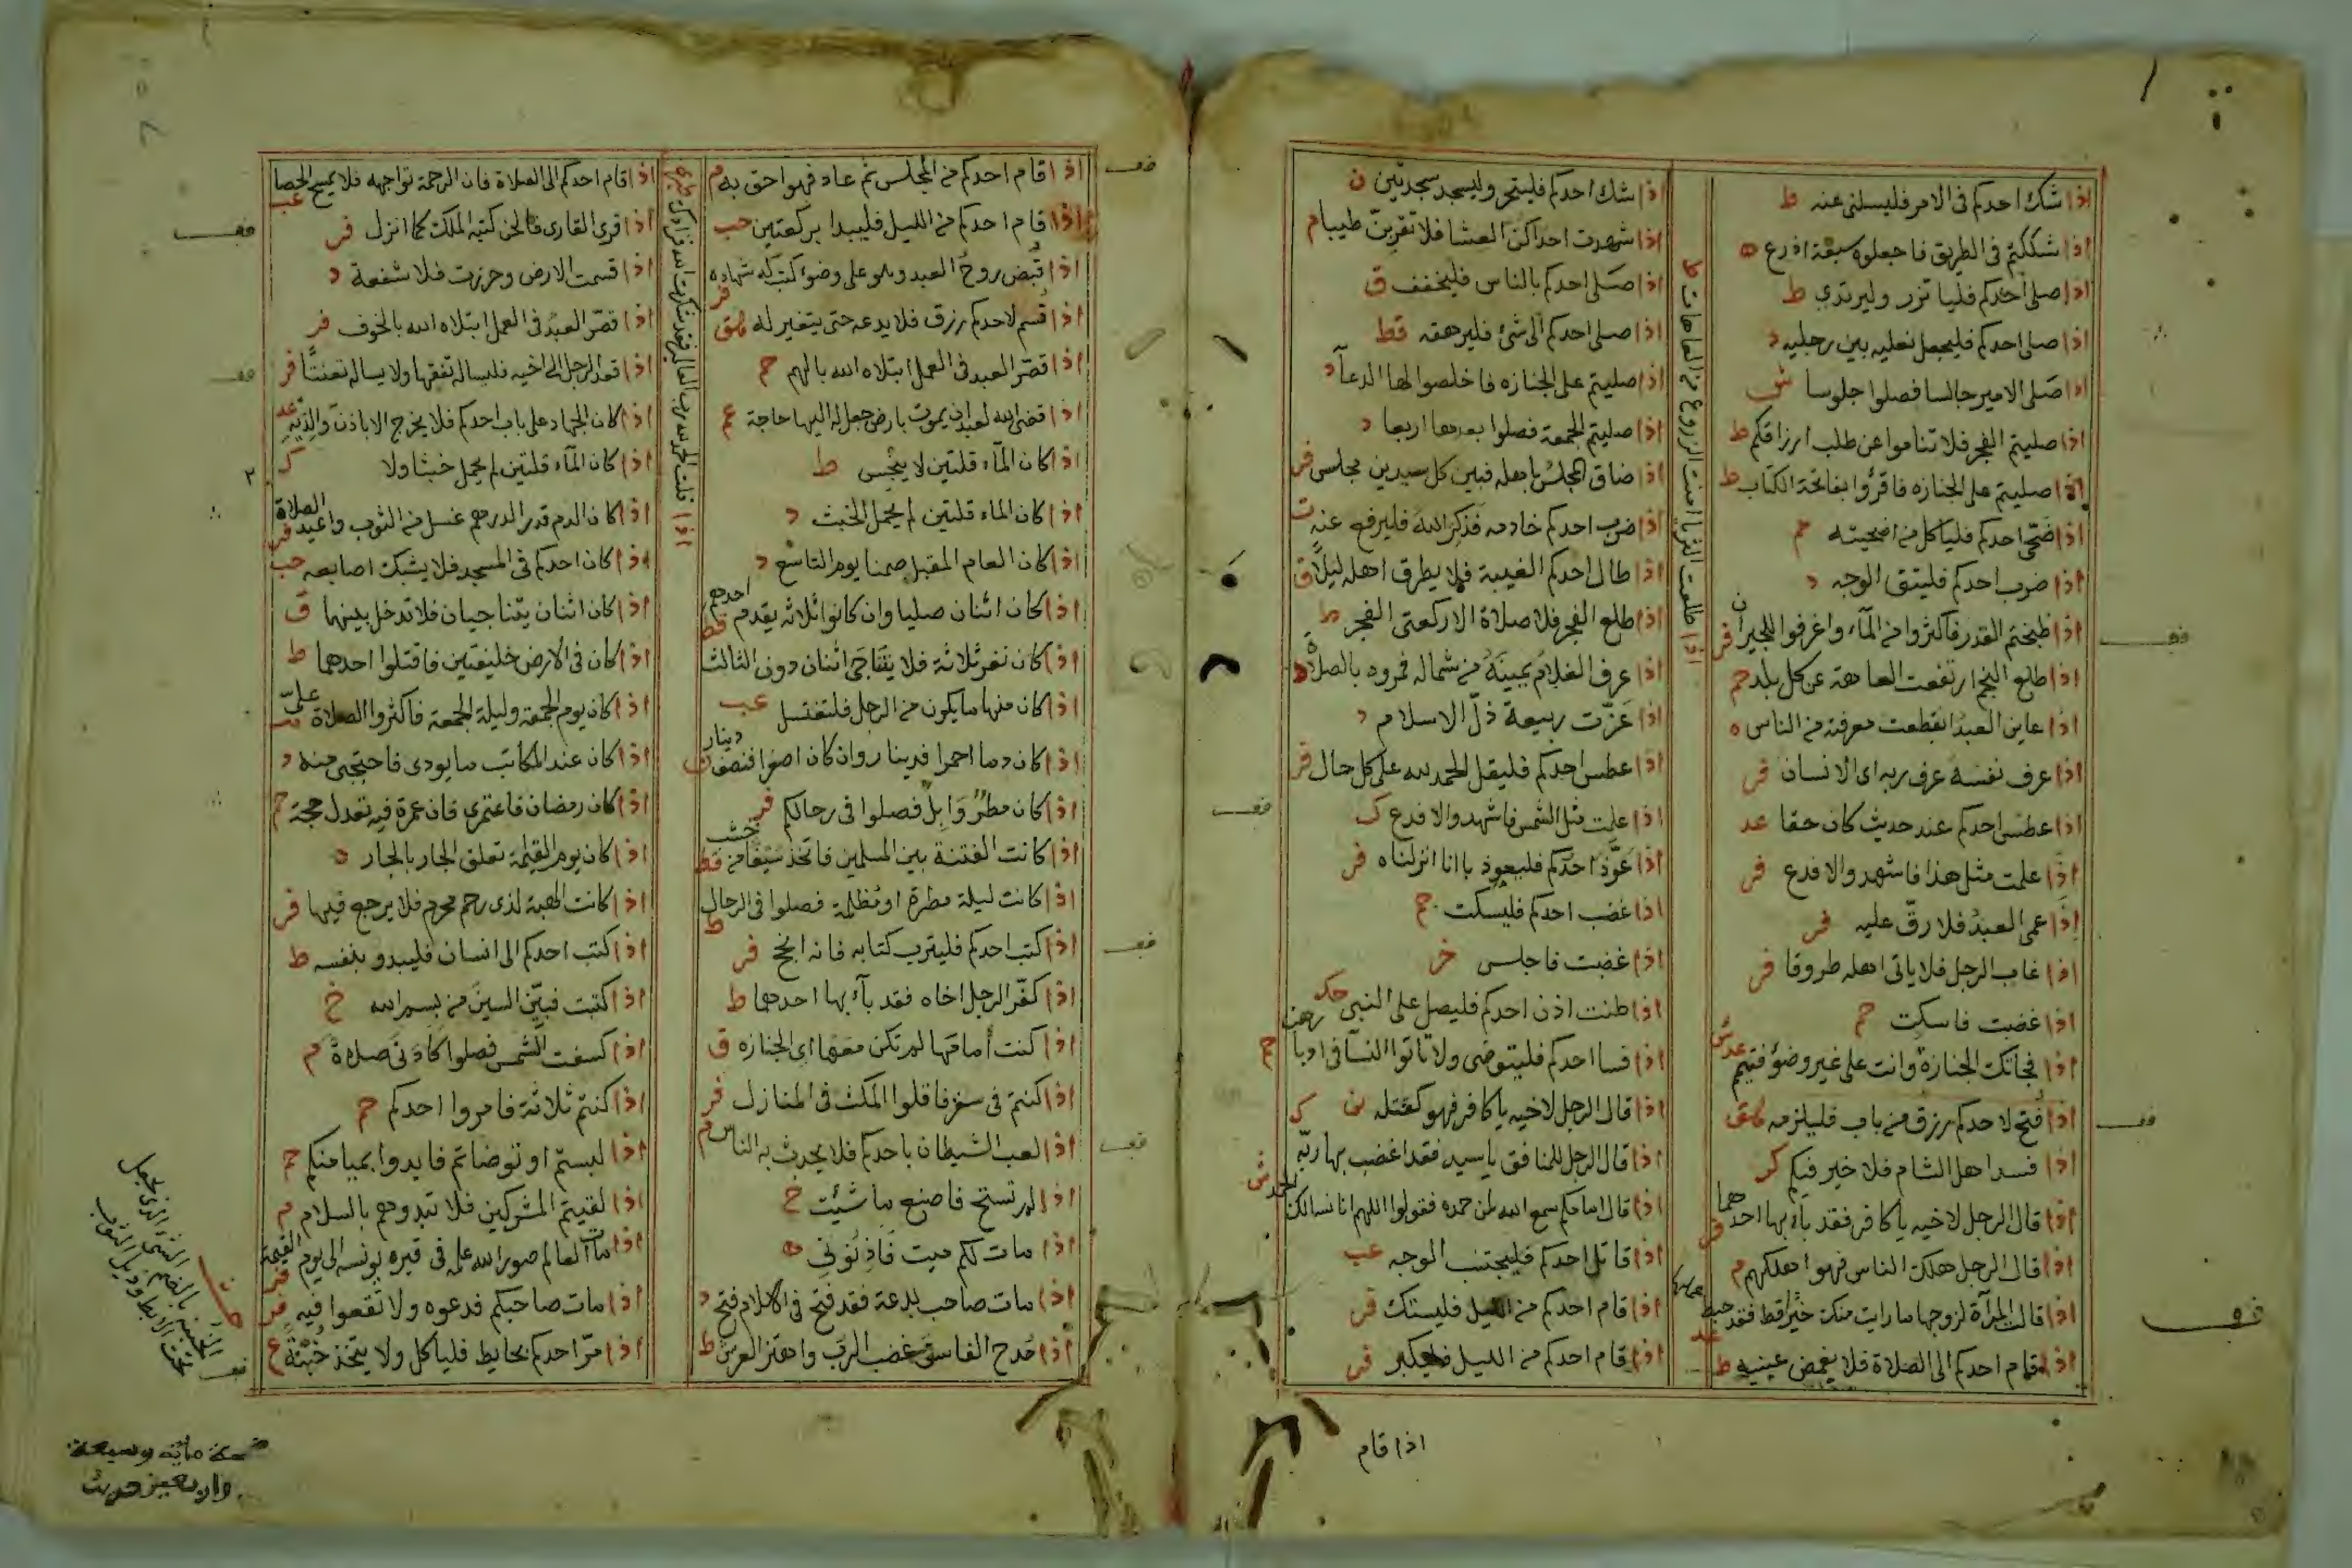 اذا شك احدكم فى الامر فليسلنى عنه ط
اذا شككتم فى الطريق فاجعلوه سبعة اذرع ه
اذا صلى احدكم فلياتزر وليرتدي ط
اذا صلى احدكم فليجعل نعليه بين رجليه د
اذا صلى الامير جالسا فصلوا جلوسا ش
اذا صليتم الفجر فلا تناموا عن طلب ارزاقكم ط
اذا صليتم على الجنازه فاقرؤا بفاتحة الكتاب ط
اذا ضحى احدكم فلياكل من اضحيته حم
اذا ضرب احدكم فليتق الوجه د
اذا طبختم القدر فاكثروا من المآء واغرفوا للجيران فر
اذا طلع النجم ارتفعت العاهة عن كل بلد حم
اذا عاين العبد انقطعت معرفته من الناس ه
اذا عرف نفسه عرف ربه اى الانسان فر
اذا عطس احدكم عند حديث كان حقا عد
اذا علمت مثل هذا فاشهد والا فدع فر
اذا عمى العبد فلا رق عليه فر
اذا غاب الرجل فلا ياتى اهله طروقا فر
اذا غضبت فاسكت حم
اذا فجأتك الجنازة وانت على غير وضوء فتيمم عد
اذا فتح لاحدكم رزق من باب فليلزمه هق
اذا فسد اهل الشام فلا خير فيكم كر
اذا قال الرجل لاخيه يا كافر فقد بآء بها احدهما
اذا قال الرجل هلك الناس فهوا هلكهم م
اذا قالت المرآة لزوجها ما رايت منك خيرا قط فقد حبط عملها
اذا قام احدكم الى الصلاة فلا يغمض عينيه ط
اذا طلعت الثريا امنت الزروع من العاهات ط
اذا شك احدكم فليتحر وليسجد سجدتين ن
اذا شهدت احداكن العشا فلا تقربن طيبا م
اذا صلى احدكم بالناس فليخفف ق
اذا صلى احدكم الى شئ فليرهقه قط
اذا صليتم على الجنازه فاخلصوا لها الدعآ د
اذا صليتم الجمعة فصلوا بعدها اربعا د
اذا ضاق المجلس باهله فبين كل سيدين مجلس فر
اذا ضرب احدكم خادمه فذكر الله فليرفع عنه ت
اذا طال احدكم الغيبة فلا يطرق اهله ليلا ق
اذا طلع الفجر فلا صلاة الا ركعتى الفجر ط
اذا عرف الغلام يمينه من شماله فمروه بالصلاة د
اذا عزت ربيعة ذل الاسلام د
اذا عطس احدكم فليقل الحمد لله على كل حال فر
اذا علمت مثل الشمس فاشهد والا فدع ك
اذا عوذ احدكم فليعوذ بانا انزلناه فر
اذا غضب احدكم فليسكت حم
اذا غضبت فاجلس
اذا طنت اذن احدكم فليصل على النبى
اذا فسا احدكم فليتوضى ولا تاتوا النسآ فى ادبارهن حم
اذا قال الرجل لاخيه يا كافر فهو كقتله
اذا قال الرجل للمنافق يا سيد فقد اغضب بها ربه ك
اذا قال امامكم سمع الله لمن حمده فقولوا اللهم انا نسالك الحمد
اذا قاتل احدكم فليجتنب الوجه عب
اذا قام احدكم من الليل فليستك فر
اذا قام احدكم من الليل فليكبر فر
اذا قام
اذا قام احدكم من المجلس ثم عاد فهوا حق به م
اذا قام احدكم من الليل فليبدا بركعتين حب
اذا قبض روح العبد وهو على وضوء كتب له شهاده فر
اذا قسم لاحدكم رزق فلا يدعه حتى يتغير له هق
اذا قصر العبد فى العمل ابتلاه الله بالهم حم
اذا قضى الله لعبد ان يموت بارض جعل له اليها حاجة عم
اذا كان المآء قلتين لا ينجس ط
اذا كان الماء قلتين لم يحمل الخبث د
اذا كان العام المقبل صمنا يوم التاسع د
اذا كان اثنان صليا وان كانوا ثلاثه يقدم احدهم قط
اذا كان نفر ثلاثة فلا يتناجى اثنان دون الثالث
اذا كان منها ما يكون من الرجل فلتغتسل عب
اذا كان دما احمرا فدينار وان كان اصفرا فنصف دينار
اذا كان مطر وابل فصلوا فى رحالكم فر
اذا كانت الفتنة بين المسلمين فاتخذ سيفا من خشب قط
اذا كانت ليلة مطرة او مظلمة فصلوا فى الرحال ط
اذا كتب احدكم فليترب كتابه فانه انجح فر
اذا كفر الرجل اخاه فقد بآء بها احدهما ط
اذا كنت أمامها لم تكن معها اى الجنازه ق
اذا كنتم فى سفر فاقلوا المكث فى المنازل فر
اذا لعب الشيطان باحدكم فلا يحدث به الناس م
اذا لم تستح فاصنع ما شئت خ
اذا مات لكم ميت فاذنونى ه
اذا مات صاحب بدعة فقد فتح فى الاسلام فتح د
اذا مدح الفاسق غضب الرب واهتز العرش ط
اذا قلت الحمد لله رب العالمين فقد شكرت الله فزادك
اذا قام احدكم الى الصلاة فان الرحمة تواجهه فلا يمسح الحصا عب
اذا قرى القارى فالحن كتبه الملك كما انزل فر
اذا قسمت الارض وحرزت فلا شفعة د
اذا قصر العبد فى العمل ابتلاه الله بالخوف فر
اذا قعد الرجل الى اخيه فليساله تفقها ولا يساله تعنتا فر
اذا كان الجهاد على باب احدكم فلا يخرج الا باذن والديه عد
اذا كان المآء قلتين لم يحمل خبثا ولا ك
اذا كان الدم قدر الدرهم غسل من الثوب واعيد الصلاة فر
اذا كان احدكم فى المسجد فلا يشبك اصابعه حب
اذا كان اثنان يتناجيان فلا تدخل بينهما ق
اذا كان فى الارض خليفتين فاقتلوا احدهما ط
اذا كان يوم الجمعة وليلة الجمعة فاكثروا الصلاة على
اذا كان عند المكاتب ما يودى فاحتجبى منه د
اذا كان رمضان فاعتمرى فان عمرة فيه تعدل حجة حم
اذا كان يوم القيمة تعلق الجار بالجار د
اذا كانت الهبة لذى رحم محرم فلا يرجع فيها فر
اذا كتب احدكم الى انسان فليبدو بنفسه ط
اذا كتبت فبين السين من بسم الله خ
اذا كسفت الشمس فصلوا كادنى صلاة م
اذا كنتم ثلاثة فامروا احدكم حم
اذا لبستم او توضاتم فابدوا بميامنكم حم
اذا لقيتم المشركين فلا تبدوهم بالسلام م
اذا مات العالم صور الله علمه فى قبره يونسه الى يوم القيمة فر
اذا مات صاحبكم فدعوه ولا تقعوا فيه فر
اذا مر احدكم بحايط فلياكل ولا يتخذ خبنة ع
الخبنة بالضم الشئ الذى يحمل
تحت الابط وذيل الثوب
مائه وسبعة
واربعين حديث